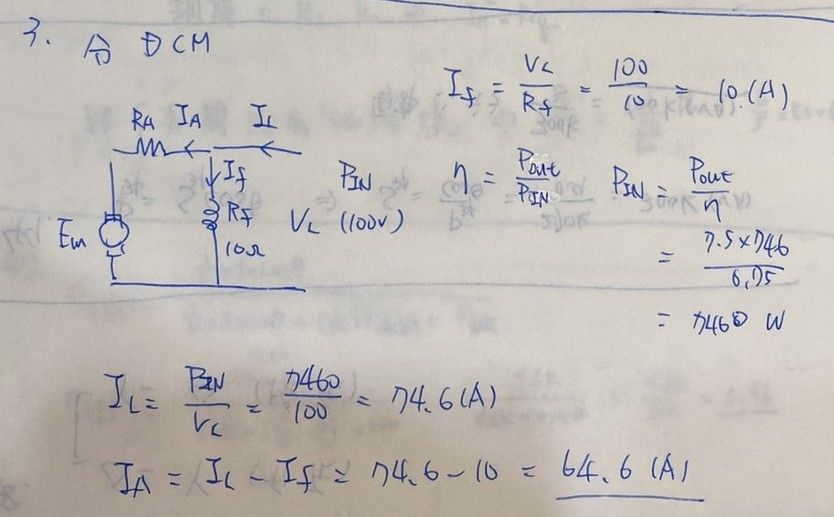 3. 分 DCM
I_f = V_L / R_f = 100 / 10 = 10 (A)
R_A I_A I_L
I_f
R_f
10Ω
E_m
P_IN
V_L (100V)
η = P_out / P_IN P_IN = P_out / η
= 7.5×746 / 0.75
= 7460 W
I_L = P_IN / V_L = 7460 / 100 = 74.6 (A)
I_A = I_L - I_f = 74.6 - 10 = 64.6 (A)